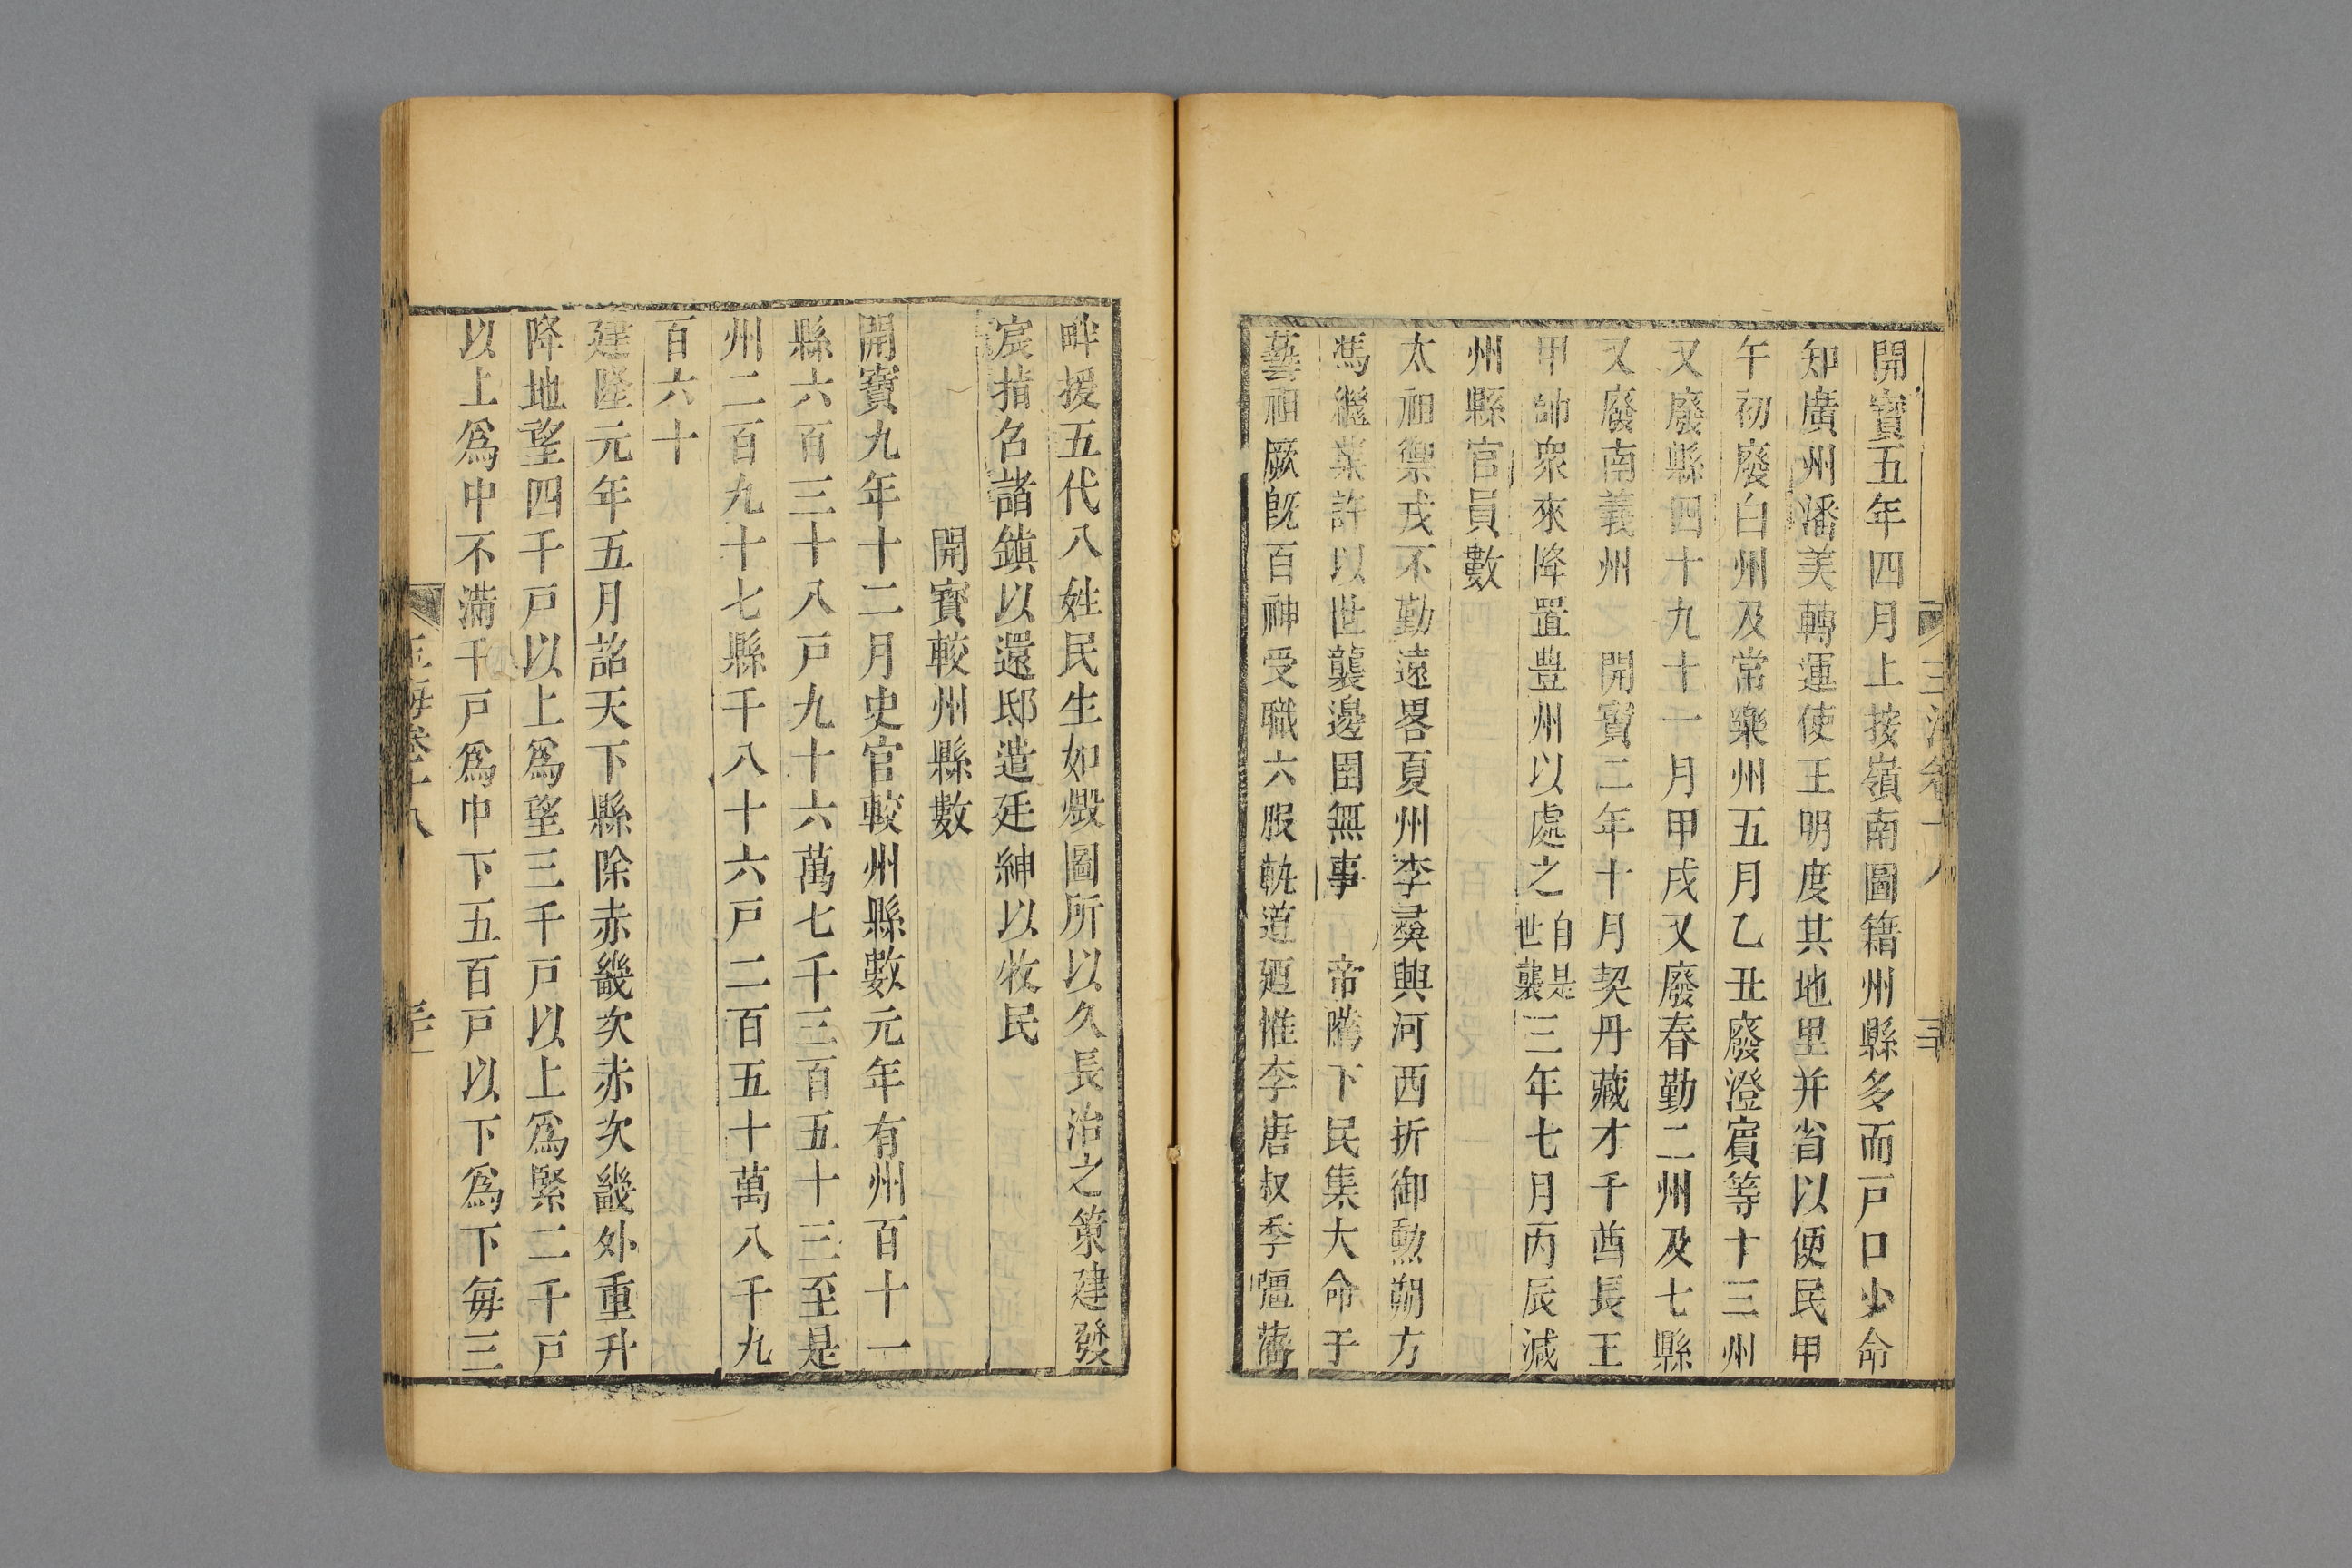 開寶五年四月上按嶺南圖籍州縣多而戸口少命
知廣州潘美轉運使王明度其地里并省以便民甲
午初廢白州及常樂州五月乙丑廢澄賔等十三州
又廢縣四十九十一月甲戌又廢春勤二州及七縣
又廢南義州 開寶二年十月契丹藏才千酋長王
甲帥衆來降置豊州以處之自是世襲三年七月丙辰減
州縣官員數
太祖禦戎不勤遠畧夏州李彛興河西折御勲朔方
馮繼業許以世襲邊圉無事 帝隲下民集大命于
藝祖厥旣百神受職六服軌道廼惟李唐叔季彊藩
畔援五代八姓民生如燬圖所以久長治之策建發
宸指名諸鎮以還邸遣廷紳以收民
開寳較州縣數
開寳九年十二月史官較州縣數元年有州百十一
縣六百三十八戸九十六萬七千三百五十三至是
州二百九十七縣千八十六戸二百五十萬八千九
百六十
建隆元年五月詔天下縣除赤畿次赤次畿外重升
降地望四千戸以上爲望三千戸以上爲緊二千戸
以上爲中不滿千戸爲中下五百戸以下爲下每三
玉海卷十八